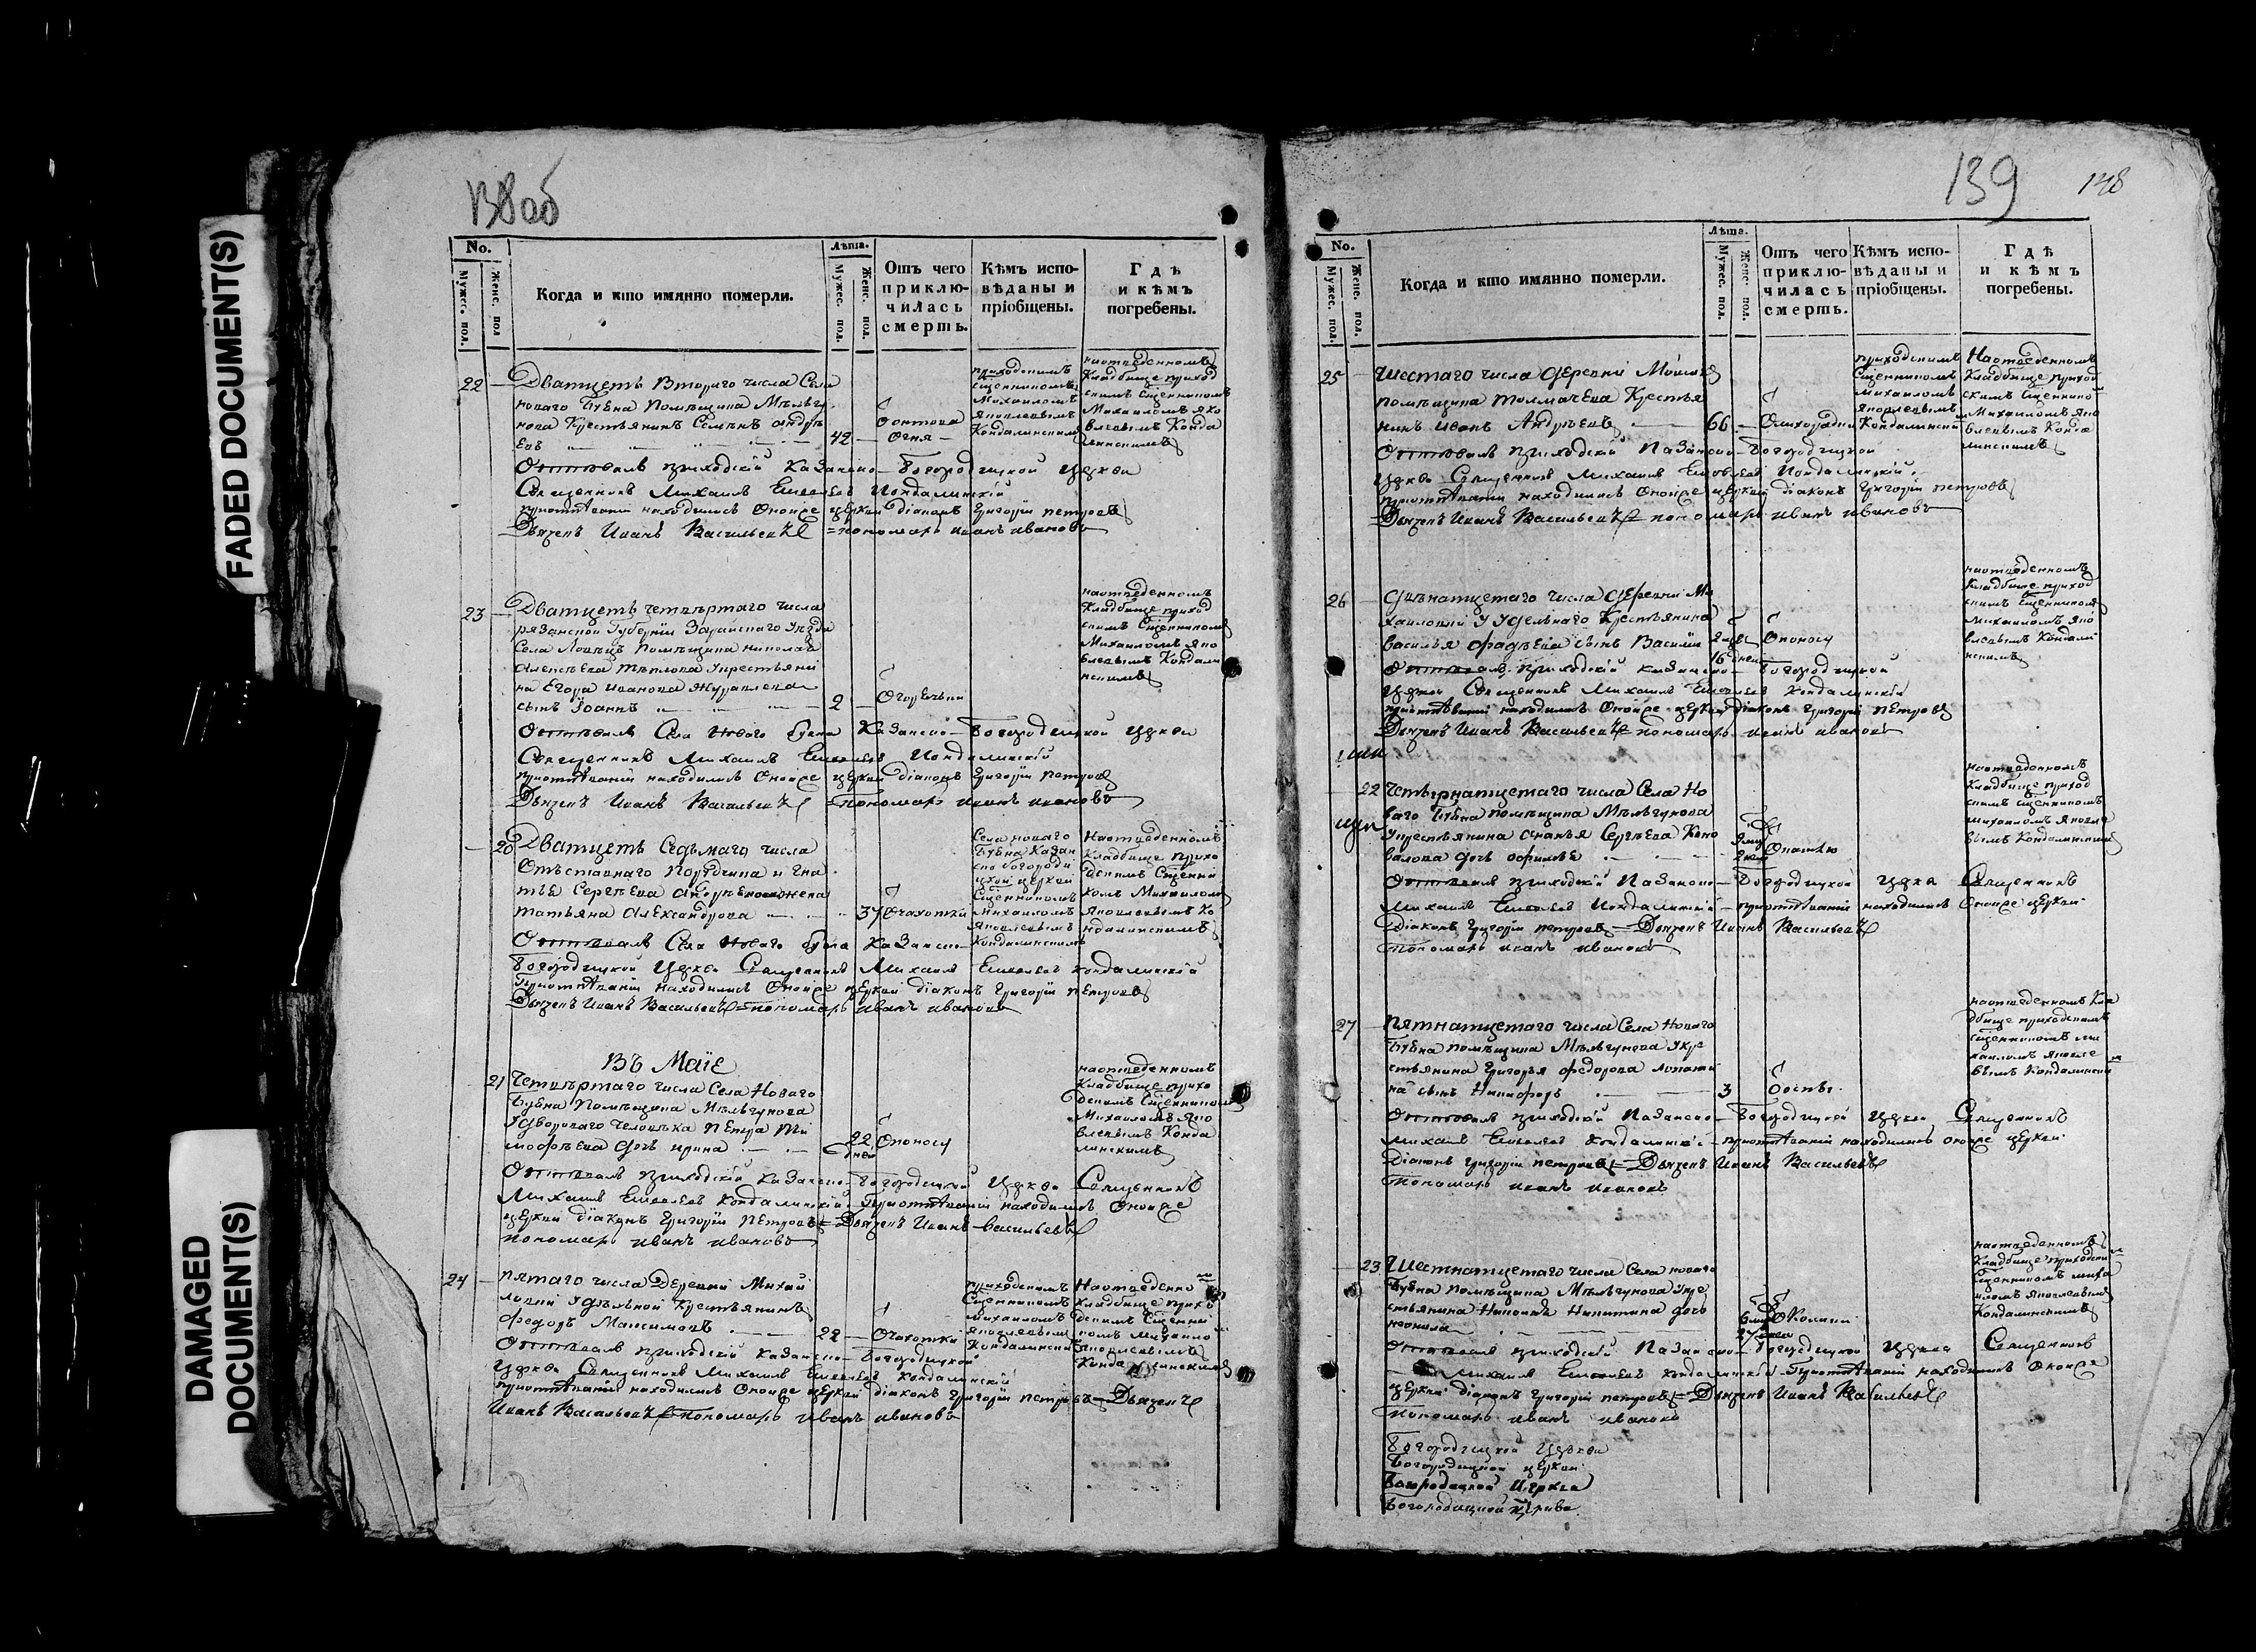 FADED DOCUMENT(S)
DAMAGED
DOCUMENT(S)
138 об
No.
Мужес. пол.
Женс. пол
Когда и кто имянно померли.
Лѣта.
Мужес. пол.
Женс. пол.
Отъ чего
приклю-
чилась
смерть.
Кѣмъ испо-
вѣданы и
пріобщены.
Гдѣ
и кѣмъ
погребены.
22
Дватцеть Втораго числа Села
новаго Бубна Помѣщика Мѣльгу
нова Крестьянинъ Семьнъ андрѣ
евъ
42
Оантова
Огня
приходскимъ
Сщенникомъ
Михаиломъ
Яковлевымъ
Кондалинскимъ
наотведенномъ
Кладбище приход
скимъ Сщенникомъ
Михаиломъ Яко
влевымъ Конда
линскимъ
Отпѣвалъ приходскій Казанско-Богородицкой Церкви
Священникъ Михаилъ Кондалинскій
приотпѣваніи находились Оноѝже церкви діаконъ Григорій петровъ
Дьячекъ Иванъ Васильевъ = пономарь иванъ ивановъ
23
Дватцеть четвѣртаго числа
рязанской Губерніи Зарайскаго Уѣзда
Села Ловецъ Помѣщика николая
Алексѣева Тѣплова Укрестьяни
на Егора иванова Журавлева
сынъ Іоаннъ
2
Огорѣчки
наотведенномъ
Кладбище приход
скимъ Сщенникомъ
Михаиломъ Яко
влевымъ Кондали
нскимъ
Отпѣвалъ Села Новаго Бубна Казанско-Богородицкой Церкви
Священникъ Михаилъ Кондалинскій
приотпѣваніи находились Онойже церкви діаконъ Григорій петровъ
Дьячекъ Иванъ Васильевъ = пономарь иванъ ивановъ
20
Дватцеть Седьмаго числа
Отъставнаго Портучика игна
тья Сергѣева жена
татьяна Александрова
37
Очахотки
Села новаго
Бубна Казан
ско богороди
цкой церкви
Сщенникомъ
Михаиломъ
Яковлевымъ
Кондалинскимъ
Наотведенномъ
Кладбище прихо
дскимъ Сщенни
комъ Михаиломъ
Яковлевымъ Ко
ндалинскимъ
Отпѣвалъ Села Новаго Бубна Казанско
Богородицкой Церкви Священникъ Михаилъ Кондалинскій
Приотпѣваніи находились Онойже церкви діаконъ Григорій петровъ
Дьячекъ Иванъ Васильевъ = пономарь иванъ ивановъ
Въ Маіе
21
Четвѣртаго числа Села Новаго
Бубна Помѣщика Мѣльгунова
Удвороваго человѣка Петра Ти
мофѣева дочь ирина
22
дней
Опоносу
наотведенномъ
Кладбище прихо
дскимъ Сщенникомъ
Михаиломъ Яко
влевымъ Конда
линскимъ
Отпѣвалъ Приходскій Казанско-Богородицкой Церкви Священникъ
Михаилъ Кондалинскій. Приотпѣваніи находились Онойже
церкви діаконъ Григорій Петровъ = Дьячекъ Иванъ Васильевъ
пономарь иванъ ивановъ
24
пятаго числа Деревни Михай
ловки Удѣльной Крестьянинъ
федоръ Максимовъ
22
Очахотки
приходскимъ
Сщенникомъ
Михаиломъ
Яковлевымъ
Кондалинскимъ
Наотведенно
Кладбище прихо
дскимъ Сщенни
комъ Михаило
Яковлевымъ
Кондалинскимъ
Отпѣвалъ приходскій Казанско-Богородицкой
Церкви Священникъ Михаилъ Кондалинскій
приотпѣваніи находились Онойже церкви діаконъ Григорій петровъ = Дьячекъ
Иванъ Васильевъ = пономарь иванъ ивановъ
139
148
No.
Мужес. пол.
Женс. пол.
Когда и кто имянно померли.
Лѣта.
Мужес. пол.
Женс. пол.
Отъ чего
приклю-
чилась
смерть.
Кѣмъ испо-
вѣданы и
пріобщены.
Гдѣ
и кѣмъ
погребены.
25
Шестаго числа деревни
помѣщика толмачева Крестья
нинъ иванъ Андрѣевъ
66
Олихорадки
приходскимъ
Сщенникомъ
Михаиломъ
Яковлевымъ
Кондалинскимъ
Наотведенномъ
Кладбище приход
скимъ Сщеннико
Михаиломъ Яко
влевымъ Конда
линскимъ
Отпѣвалъ приходскій Казанско-Богородицкой
Церкви Священникъ Михаилъ Кондалинскій.
приотпѣваніи находились Онойже церкви діаконъ Григорій петровъ
Дьячекъ Иванъ Васильевъ = пономарь иванъ ивановъ
26
Двѣнатцетаго числа деревни Ми
хайловки Уудельнаго Крестьянина
василья фадѣева сынъ Василій
16 дней
Опоносу
наотведенномъ
Кладбище приход
скимъ Сщенникомъ
Михаиломъ Яко
влевымъ Кондали
нскимъ
Отпѣвалъ приходскій казанско-Богородицкой
Церкви Священникъ Михаилъ Кондалинскій
приотпѣваніи находились Онойже церкви діаконъ Григорій петровъ
Дьячекъ Иванъ Васильевъ = пономарь иванъ ивановъ
22
Четырнатцетаго числа Села Но
ваго Бубна помѣщика Мѣльгунова
Укрестьянина ананья Сергѣева Коно
валова дочь офимья
наотведенномъ
Кладбище приход
скимъ Сщенникомъ
михаиломъ Яковле
вымъ Кондалинскимъ
Отпѣвалъ приходскій Казанско-Богородицкой Церкви Священникъ
Михаилъ Кондалинскій - приотпѣваніи находились Онойже церкви
Діаконъ Григорій петровъ = Дьячекъ Иванъ Васильевъ
Пономарь иванъ ивановъ
27
Пятнатцетаго числа Села Новаго
Бубна помѣщика Мѣльгунова Укре
стьянина Григорья федорова лопати
на сынъ Никифоръ
3
Ооспы.
наотведенномъ Кла
дбище приходскимъ
сщенникомъ ми
хаиломъ Яковле
вымъ Кондалински
Отпѣвалъ приходскій Казанско-Богородицкой Церкви Священникъ
Михаилъ Кондалинскій - приотпѣваніи находились онойже церкви
Діаконъ Григорій петровъ = Дьячекъ Иванъ Васильевъ
Пономарь иванъ ивановъ
23
Шестнатцетаго числа Села новаго
Бубна помѣщика Мѣльгунова Укре
стьянина Николая Никитина дочь
27 дней
наотведенномъ
Кладбище приходски
Сщенникомъ миха
иломъ Яковлевымъ
Кондалинскимъ
Отпѣвалъ приходскій Казанско-Богородицкой Церкви Священникъ
Михаилъ Кондалинскій. Приотпѣваніи находились Онойже
церкви діаконъ Григорій петровъ = Дьячекъ Иванъ Васильевъ
Пономарь иванъ ивановъ
Богородицкой Церкви
Богородицкой церкви
Богородицкой Церкви
Богородицкой Церкве